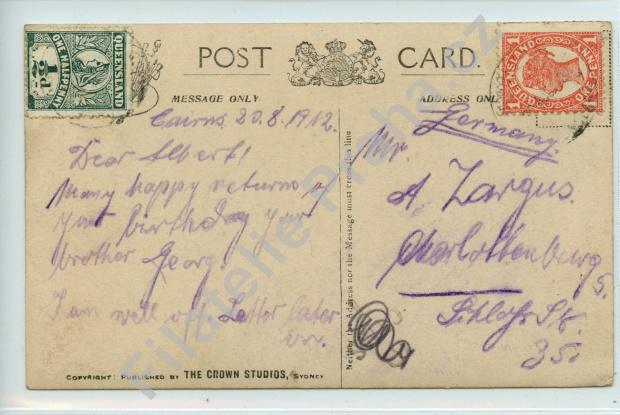 POST CARD.
MESSAGE ONLY.
ADDRESS ONL
QUEENSLAND
1/2 D
ONE HALFPENNY
QUEENSLAND
ONE PENNY
1
1
1
1
Cairns 20.8.1912.
Dear Albert!
Many happy returns of
your birthday your
brother Georg.
I am well off Letter later
Germany.
Mr.
A. Zargus.
Charlottenburg 5.
Schloss St.
35.
Neither the Address nor the Message must cross this line
COPYRIGHT: PUBLISHED BY THE CROWN STUDIOS, SYDNEY
Filatelie Praha.cz